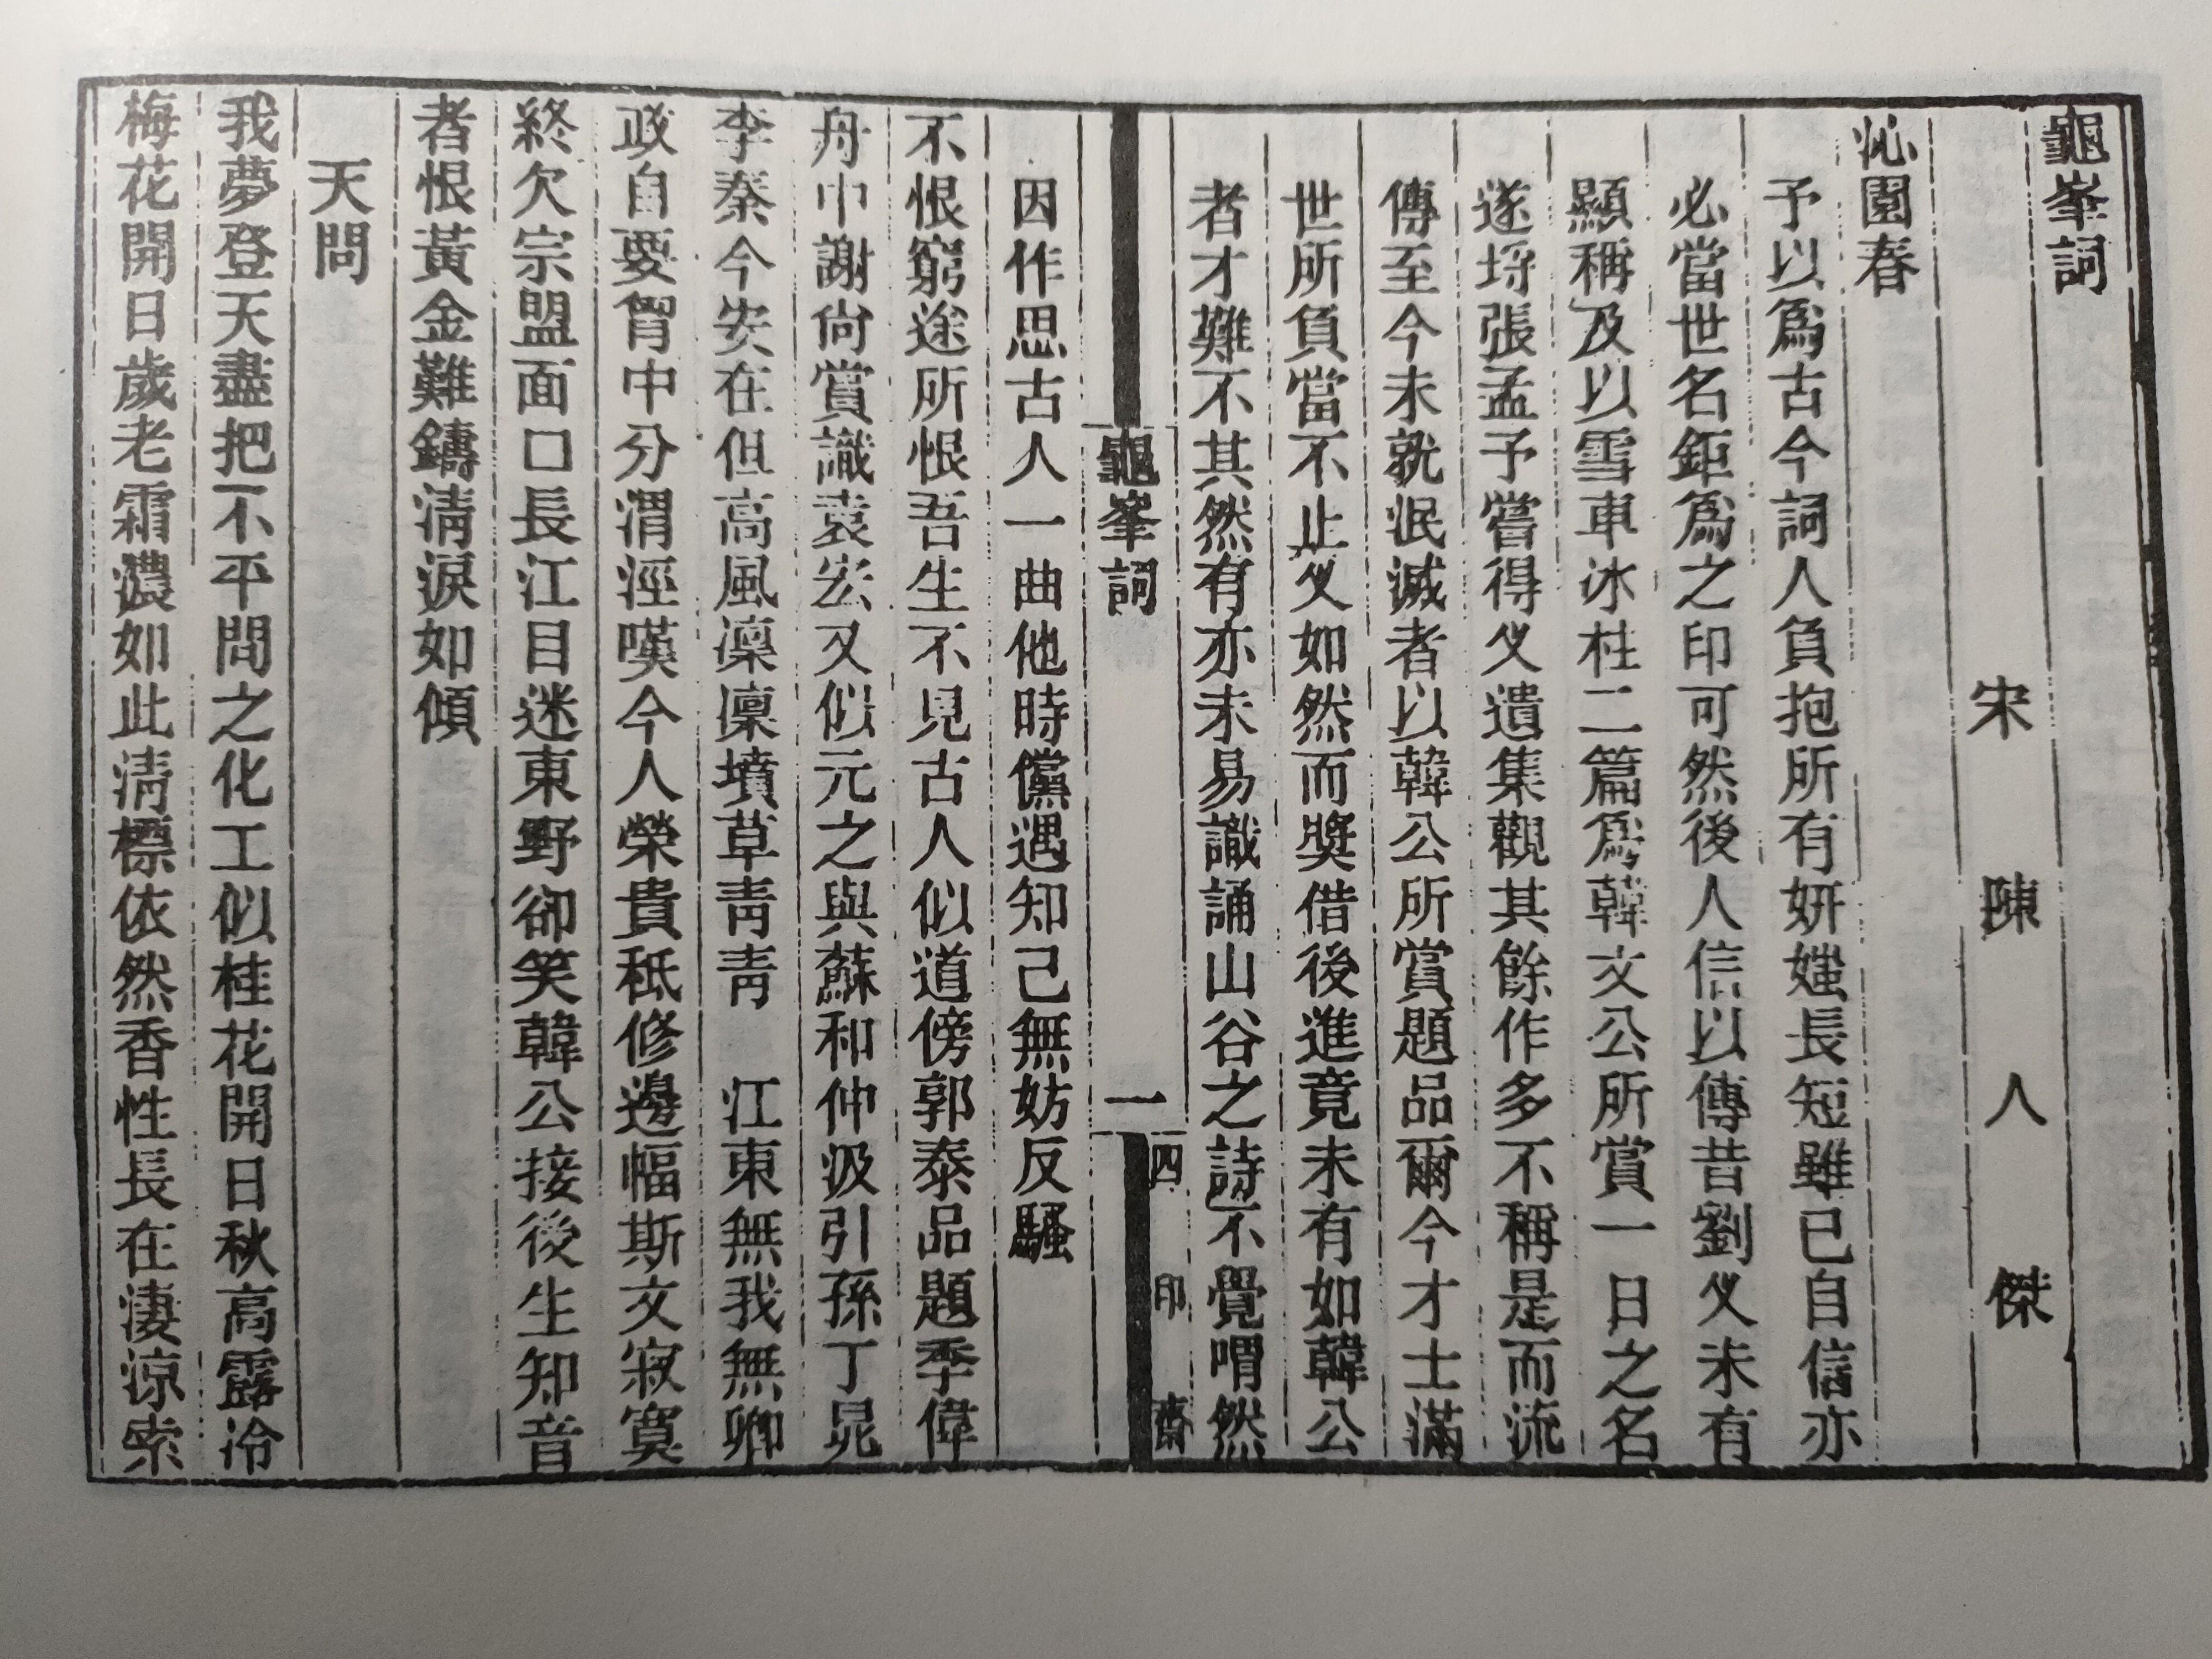 龜峯詞
宋　陳　人　傑
沁園春
予以爲古今詞人負抱所有妍媸長短雖已自信亦
必當世名鉅爲之印可然後人信以傳昔劉义未有
顯稱及以雪車冰柱二篇爲韓文公所賞一日之名
遂埒張孟予嘗得义遺集觀其餘作多不稱是而流
傳至今未就泯滅者以韓公所賞題品爾今才士滿
世所負當不止义如然而奬借後進竟未有如韓公
者才難不其然有亦未易識誦山谷之詩不覺喟然
龜峯詞　一　四印齋
因作思古人一曲他時儻遇知己無妨反騷
不恨窮途所恨吾生不見古人似道傍郭泰品題季偉
舟中謝尙賞識袁宏又似元之與蘇和仲汲引孫丁晁
李秦今安在但高風凜凜墳草靑靑　江東無我無卿
政自要胷中分渭涇嘆今人榮貴秪修邊幅斯文寂寞
終欠宗盟面口長江目迷東野卻笑韓公接後生知音
者恨黃金難鑄淸淚如傾
天問
我夢登天盡把不平問之化工似桂花開日秋高露冷
梅花開日歲老霜濃如此淸標依然香性長在淒涼索